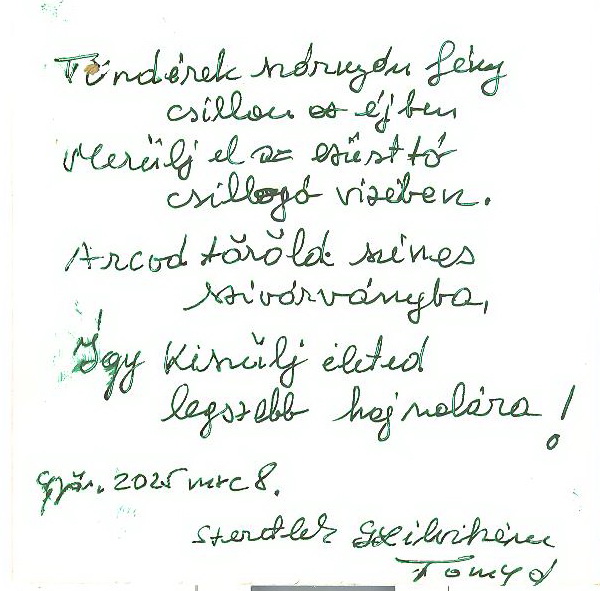 Tündérek szárnyán fény
csillan az éjben
Merülj el az ezüst tó
csillogó vizében.
Arcod töröld színes
szivárványba,
Így készülj életed
legszebb hajnalára!
Győr. 2025 márc 8.
Szeretlek Szilvikém